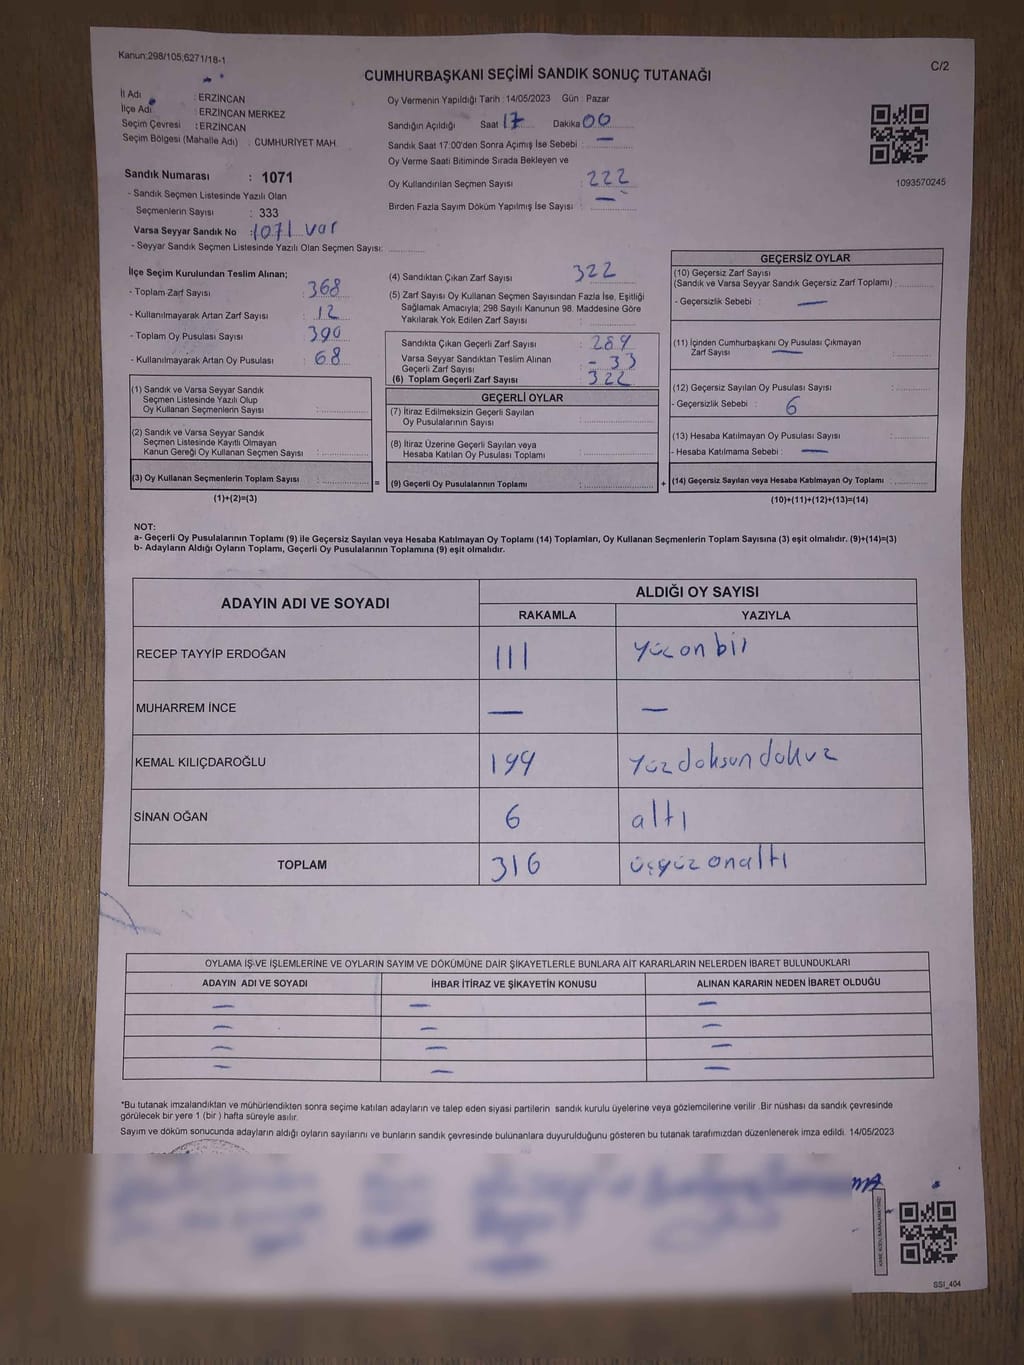 Kanun;298/105;6271/18-1
C/2
CUMHURBAŞKANI SEÇİMİ SANDIK SONUÇ TUTANAĞI
İl Adı : ERZİNCAN
İlçe Adı : ERZİNCAN MERKEZ
Seçim Çevresi : ERZİNCAN
Seçim Bölgesi (Mahalle Adı) : CUMHURİYET MAH.
Sandık Numarası : 1071
- Sandık Seçmen Listesinde Yazılı Olan
Seçmenlerin Sayısı : 333
Varsa Seyyar Sandık No : 1071 var
- Seyyar Sandık Seçmen Listesinde Yazılı Olan Seçmen Sayısı:
Oy Vermenin Yapıldığı Tarih : 14/05/2023 Gün : Pazar
Sandığın Açıldığı Saat 17 Dakika 00
Sandık Saat 17.00'den Sonra Açılmış İse Sebebi : —
Oy Verme Saati Bitiminde Sırada Bekleyen ve
Oy Kullandırılan Seçmen Sayısı : 222
Birden Fazla Sayım Döküm Yapılmış İse Sayısı : —
1093570245
İlçe Seçim Kurulundan Teslim Alınan;
- Toplam Zarf Sayısı : 368
- Kullanılmayarak Artan Zarf Sayısı : 12
- Toplam Oy Pusulası Sayısı : 390
- Kullanılmayarak Artan Oy Pusulası : 68
(1) Sandık ve Varsa Seyyar Sandık
Seçmen Listesinde Yazılı Olup
Oy Kullanan Seçmenlerin Sayısı :
(2) Sandık ve Varsa Seyyar Sandık
Seçmen Listesinde Kayıtlı Olmayan
Kanun Gereği Oy Kullanan Seçmen Sayısı :
(3) Oy Kullanan Seçmenlerin Toplam Sayısı : =
(1)+(2)=(3)
(4) Sandıktan Çıkan Zarf Sayısı 322
(5) Zarf Sayısı Oy Kullanan Seçmen Sayısından Fazla İse, Eşitliği
Sağlamak Amacıyla; 298 Sayılı Kanunun 98. Maddesine Göre
Yakılarak Yok Edilen Zarf Sayısı :
Sandıkta Çıkan Geçerli Zarf Sayısı : 289
Varsa Seyyar Sandıktan Teslim Alınan
Geçerli Zarf Sayısı : - 33
(6) Toplam Geçerli Zarf Sayısı : 322
GEÇERLİ OYLAR
(7) İtiraz Edilmeksizin Geçerli Sayılan
Oy Pusulalarının Sayısı :
(8) İtiraz Üzerine Geçerli Sayılan veya
Hesaba Katılan Oy Pusulası Toplamı :
(9) Geçerli Oy Pusulalarının Toplamı : +
GEÇERSİZ OYLAR
(10) Geçersiz Zarf Sayısı
(Sandık ve Varsa Seyyar Sandık Geçersiz Zarf Toplamı) :
- Geçersizlik Sebebi : —
(11) İçinden Cumhurbaşkanı Oy Pusulası Çıkmayan
Zarf Sayısı — :
(12) Geçersiz Sayılan Oy Pusulası Sayısı :
- Geçersizlik Sebebi : 6
(13) Hesaba Katılmayan Oy Pusulası Sayısı :
- Hesaba Katılmama Sebebi : —
(14) Geçersiz Sayılan veya Hesaba Katılmayan Oy Toplamı :
(10)+(11)+(12)+(13)=(14)
NOT:
a- Geçerli Oy Pusulalarının Toplamı (9) ile Geçersiz Sayılan veya Hesaba Katılmayan Oy Toplamı (14) Toplamları, Oy Kullanan Seçmenlerin Toplam Sayısına (3) eşit olmalıdır. (9)+(14)=(3)
b- Adayların Aldığı Oyların Toplamı, Geçerli Oy Pusulalarının Toplamına (9) eşit olmalıdır.
ADAYIN ADI VE SOYADI ALDIĞI OY SAYISI
RAKAMLA YAZIYLA
RECEP TAYYİP ERDOĞAN 111 Yüz on bir
MUHARREM İNCE — —
KEMAL KILIÇDAROĞLU 199 Yüz doksan dokuz
SİNAN OĞAN 6 altı
TOPLAM 316 üçyüz onaltı
OYLAMA İŞ VE İŞLEMLERİNE VE OYLARIN SAYIM VE DÖKÜMÜNE DAİR ŞİKAYETLERLE BUNLARA AİT KARARLARIN NELERDEN İBARET BULUNDUKLARI
ADAYIN ADI VE SOYADI İHBAR İTİRAZ VE ŞİKAYETİN KONUSU ALINAN KARARIN NEDEN İBARET OLDUĞU
— — —
— — —
— — —
— — —
*Bu tutanak imzalandıktan ve mühürlendikten sonra seçime katılan adayların ve talep eden siyasi partilerin sandık kurulu üyelerine veya gözlemcilerine verilir .Bir nüshası da sandık çevresinde
görülecek bir yere 1 (bir ) hafta süreyle asılır.
Sayım ve döküm sonucunda adayların aldığı oyların sayılarını ve bunların sandık çevresinde bulunanlara duyurulduğunu gösteren bu tutanak tarafımızdan düzenlenerek imza edildi. 14/05/2023
SSI_404